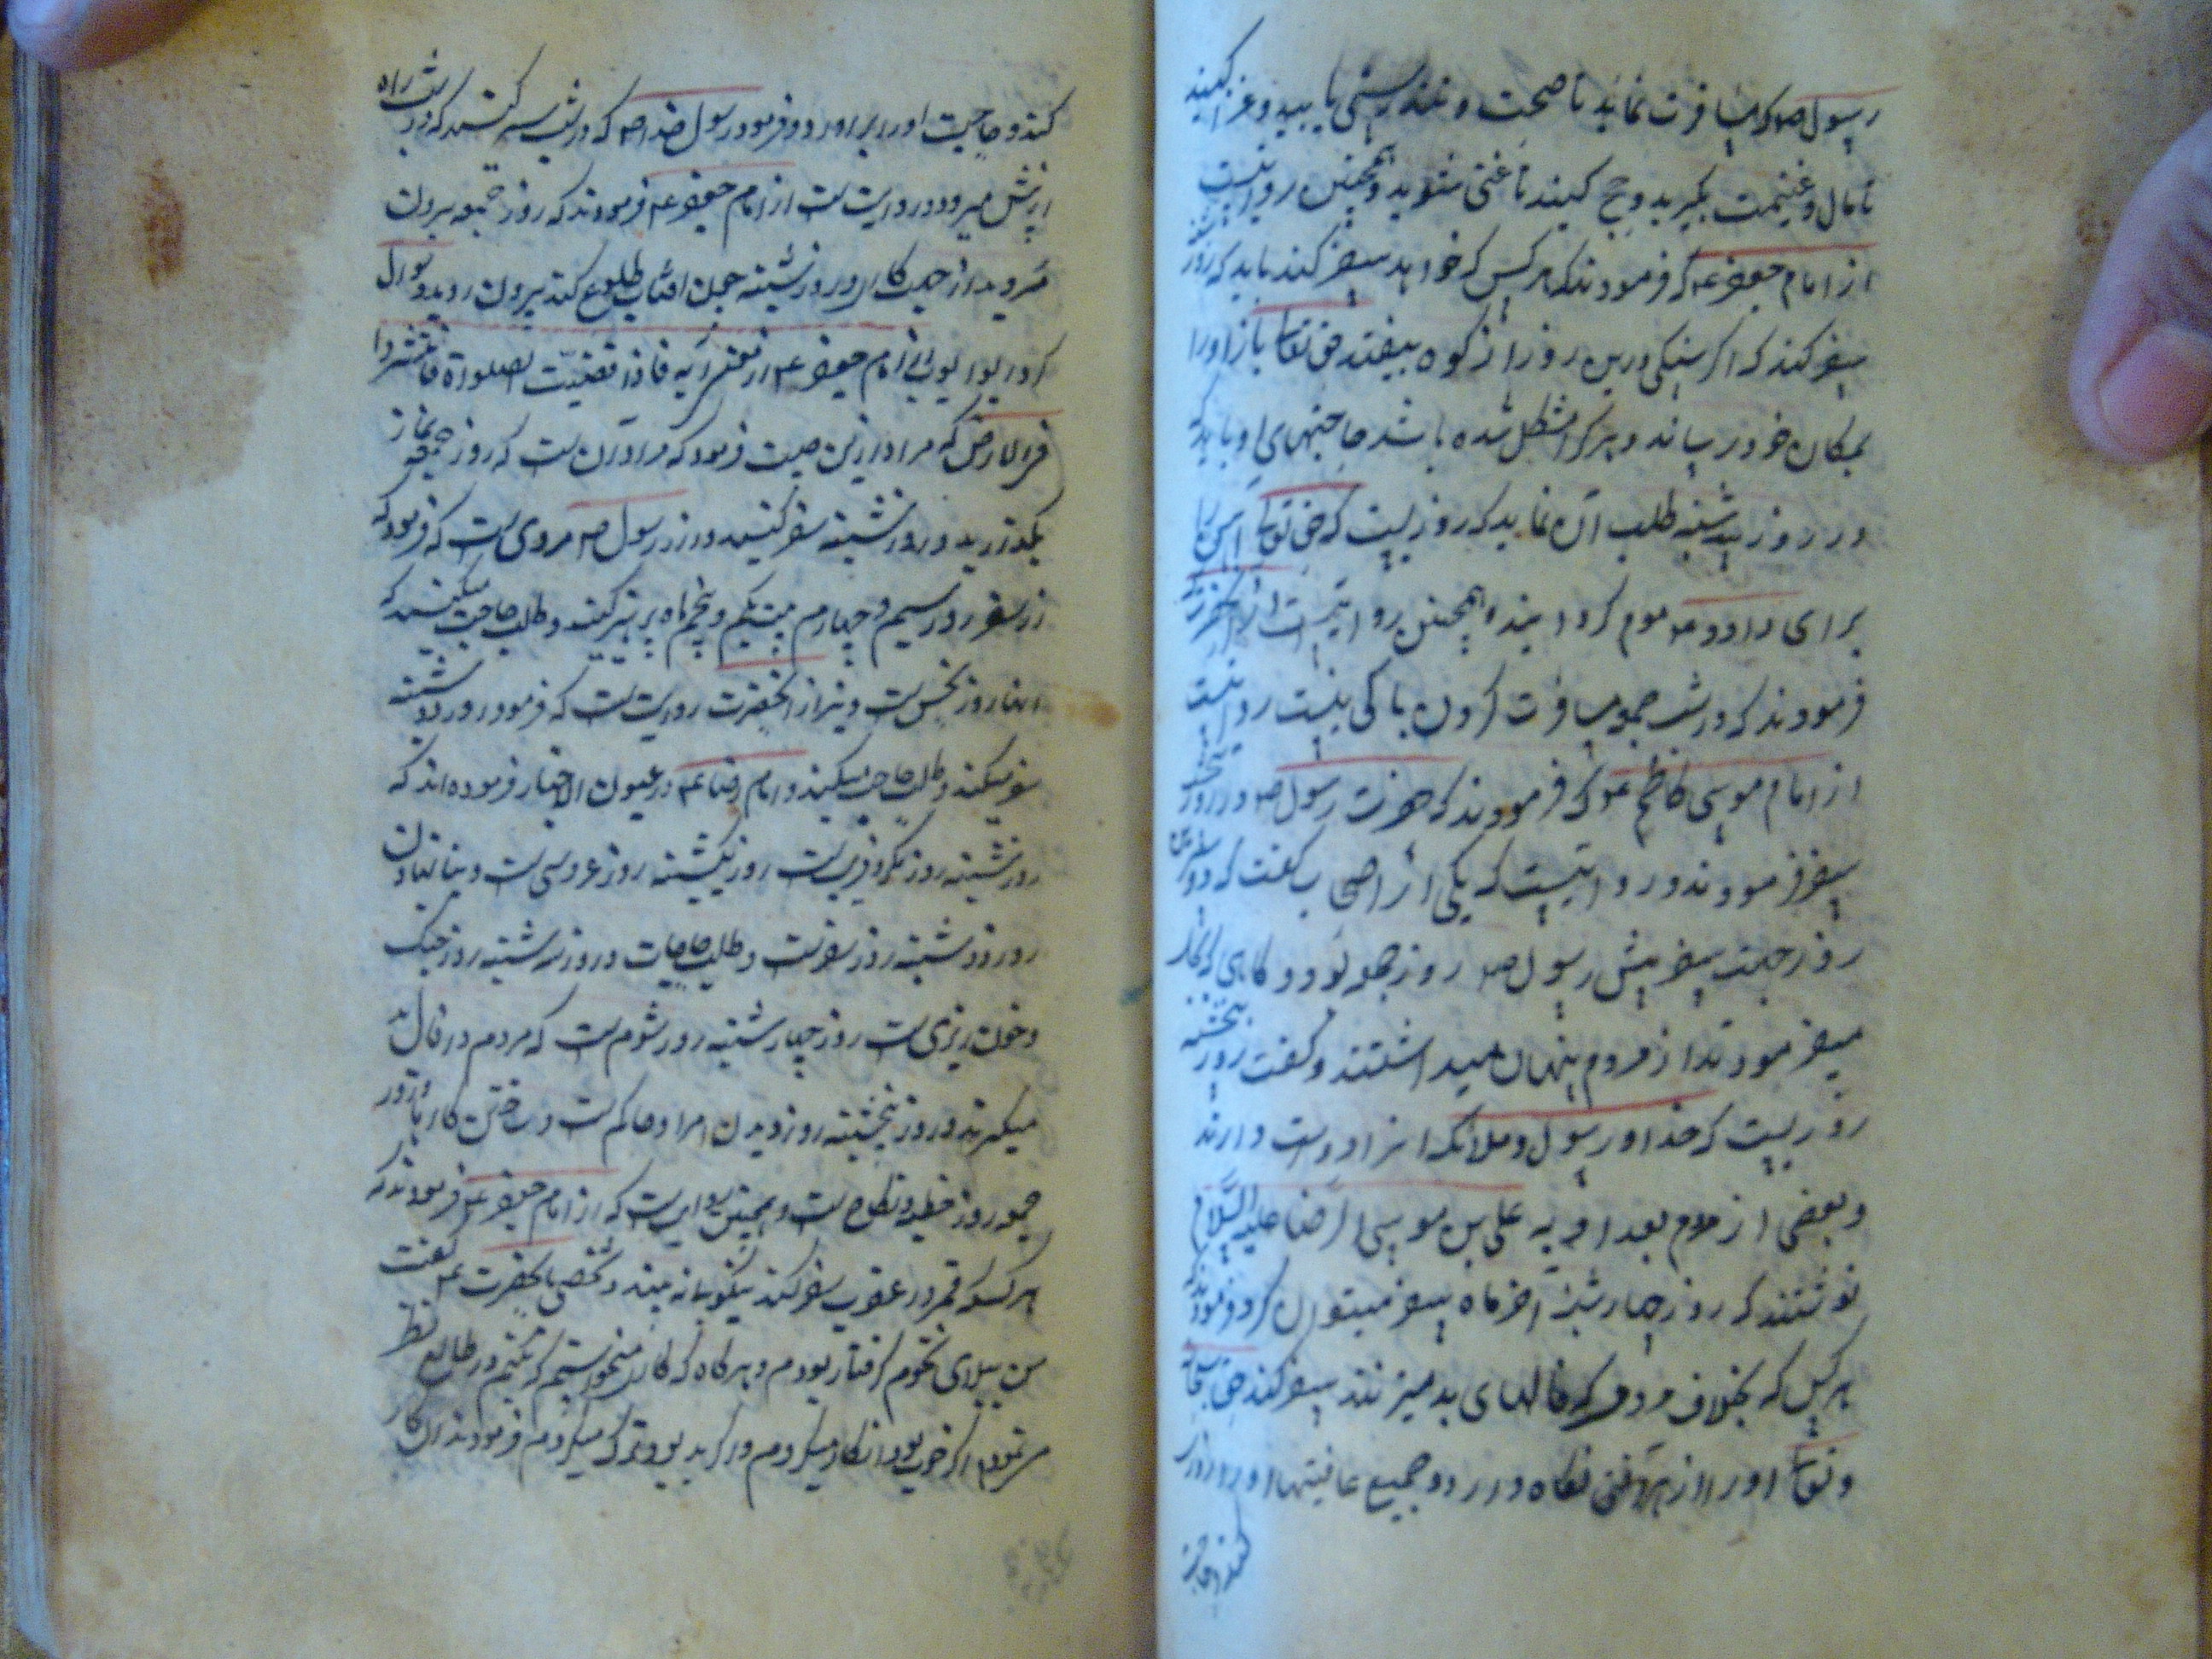 رسول ص که مسافرت نماید تا صحت و تندرستی یابید و غزا کنید
تا مال و غنیمت بگیرید و حج کنید تا غنی شوید و همچنین روایتست
از امام جعفر ع که فرمودند که هر کس که خواهد سفر کند باید که روز شنبه
سفر کند که اگر سنکی درین روز از کوه بیفتد حق تعا باز او را
بمکان خود رساند و هر کرا مشکل شده باشد حاجتهای او باید که
در روز سه شنبه طلب آن نماید که روزیست که حق تعا آهن را
برای داود ع موم کردانیده و همچنین روایتست از آنحضرت که
فرمودند که در شب جمعه مسافرت کردن باکی نیست روایتست
از امام موسی کاظم ع که فرمودند که حضرت رسول ص در روز پنجشنبه
سفر فرمودند و روایتیست که یکی از اصحاب کفت که دو سفر من
روز جهت سفر پیش رسول ص روز جمعه بود و کاهی که
میفرمودند از مردم پنهان میداشتند و کفت روز پنجشنبه
روزیست که خدا و رسول و ملائکه انرا دوست دارند
و بعضی از مردم بغدادیه علی بن موسی الرضا علیه السلام
نوشتند که روز چهارشنبه آخر ماه سفر میتوان کرد فرمودند که
هر کس که بخلاف مردم که فالهای بد میزنند سفر کند حق سبحانه
و تعا او را از هر آفتی نگاه دارد و جمیع عافیتها او را روزی
کند و حاجت
کند و حاجت او را برآورد و فرمود رسول خدا ص که در شب سیر کنید که در شب راه
از پیش میرود و روایت ست از امام جعفر ع فرمودند که روز جمعه بیرون
مروید از جهت کار و روز شنبه چون افتاب طلوع کند بیرون روید و سوال
کرد ابو ایوب از امام جعفر ع از تفسیر آیه فاذا قضیت الصلوة فانتشروا
فی الارض که مراد ازین چیست فرمود که مراد آن ست که روز جمعه نماز
بگذارید و روز شنبه سفر کنید و از رسول ص مروی ست که فرمود که
از سفر روز سیم و چهارم بیست یکم و پنجم ماه پرهیز کنید و طلب حاجت مکنید که
اینها روز نحس ست و نیز از آنحضرت روایت ست که فرمود روز دوشنبه
سفر میکند و طلب حاجت میکند و امام رضا ع در عیون الاخبار فرموده اند که
روز شنبه روز مکر و فریب ست روز یکشنبه روز عروسی ست و بنا نهادن
روز دوشنبه روز سفر ست و طلب حاجات و روز سه شنبه روز جنک
و خون ریزی ست روز چهارشنبه روز شوم ست که مردم در فال بد
میکیرند و روز پنجشنبه روز دیدن امرا و حاکم ست و ساختن کارها و روز
جمعه روز خطبه و نکاح ست و همچنین روایت ست که از امام جعفر ع فرمودند که
هر کس که قمر در عقرب سفر کند نیکویها نه بیند و شخصی بآنحضرت ع کفت
من ببلای نجوم کرفتار بودم و هر کاه که کاری میخواستم که بکنم در طالع نظر
میکردم اگر خوب بود آن کار میکردم و اگر بد بود ترک میکردم فرمودند ان کار